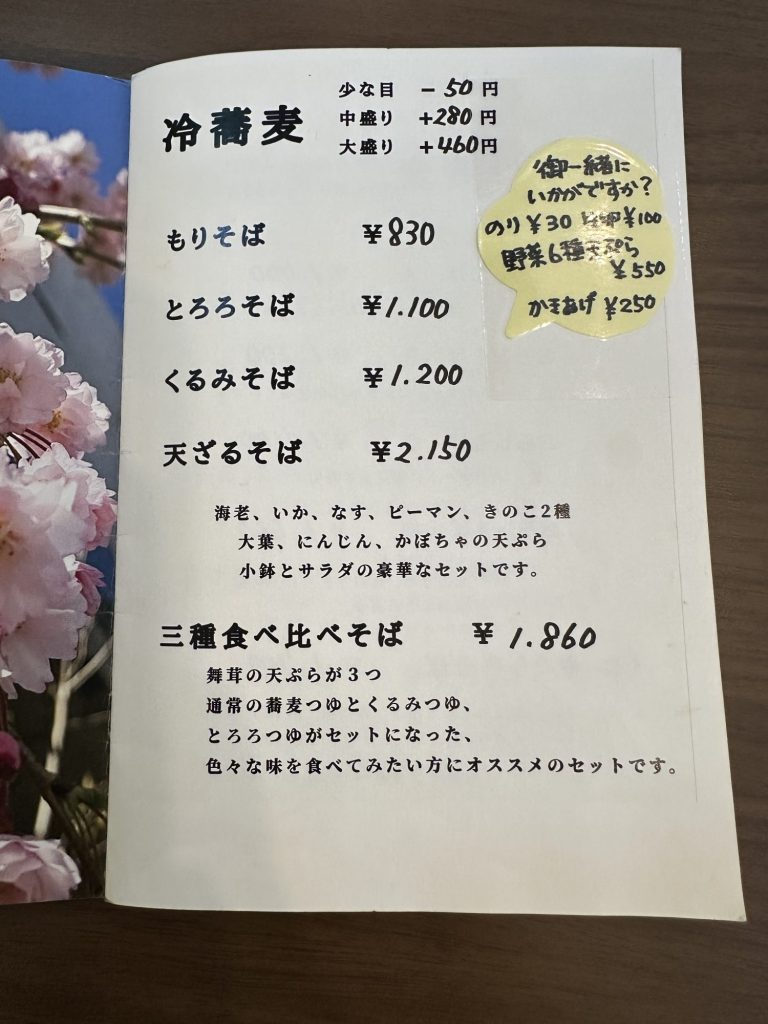 冷蕎麦
少な目 -50円
中盛り +280円
大盛り +460円
御一緒に
いかがですか?
のり ¥30 生卵 ¥100
野菜6種天ぷら
¥550
かきあげ ¥250
もりそば ¥830
とろろそば ¥1.100
くるみそば ¥1.200
天ざるそば ¥2.150
海老、いか、なす、ピーマン、きのこ2種
大葉、にんじん、かぼちゃの天ぷら
小鉢とサラダの豪華なセットです。
三種食べ比べそば ¥1.860
舞茸の天ぷらが3つ
通常の蕎麦つゆとくるみつゆ、
とろろつゆがセットになった、
色々な味を食べてみたい方にオススメのセットです。